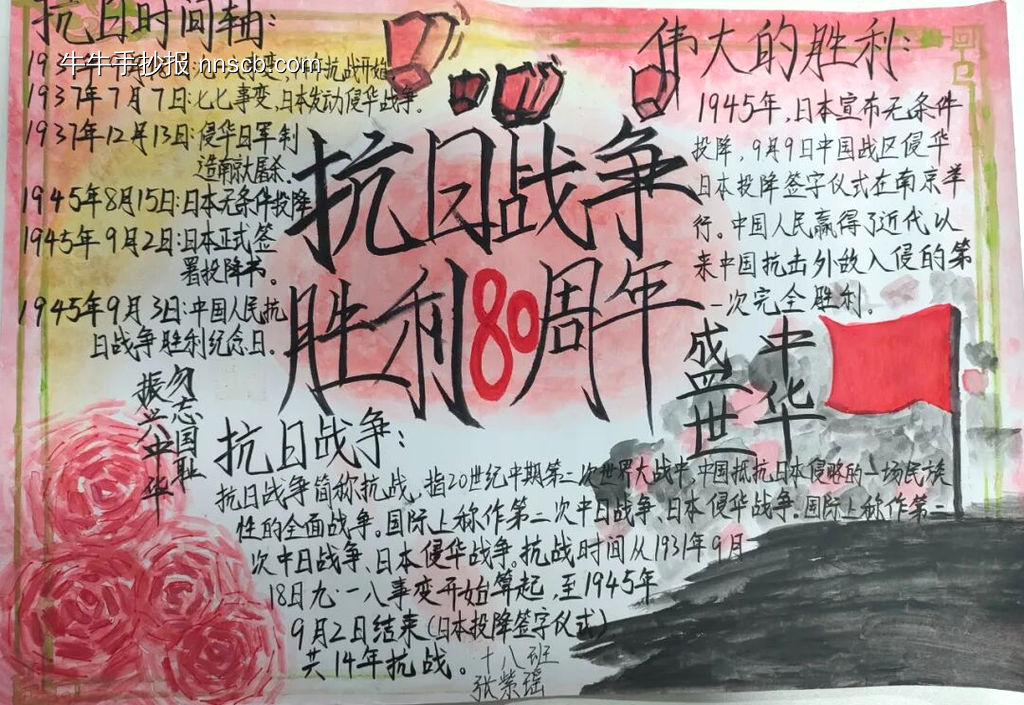 抗日时间轴:
牛牛手抄报 nnscb.com
抗战开始
1937年7月7日:七七事变,日本发动侵华战争。
1937年12月13日:侵华日军制
造南京大屠杀、
1945年8月15日:日本无条件投降
1945年9月2日:日本正式签
署投降书。
1945年9月3日:中国人民抗
日战争胜利纪念日。
抗日战争
胜利80周年
伟大的胜利:
1945年,日本宣布无条件
投降,9月9日中国战区侵华
日本投降签字仪式在南京举
行。中国人民赢得了近代以
来中国抗击外敌入侵的第
一次完全胜利。
盛世
中华
勿志国耻
振兴中华
抗日战争:
抗日战争简称抗战,指20世纪中期第二次世界大战中,中国抵抗日本侵略的一场民族
性的全面战争。国际上称作第二次中日战争、日本侵华战争。国际上称作第二
次中日战争、日本侵华战争。抗战时间从1931年9月
18日九·一八事变开始算起,至1945年
9月2日结束(日本投降签字仪式)
共14年抗战。
十八班
张紫瑶